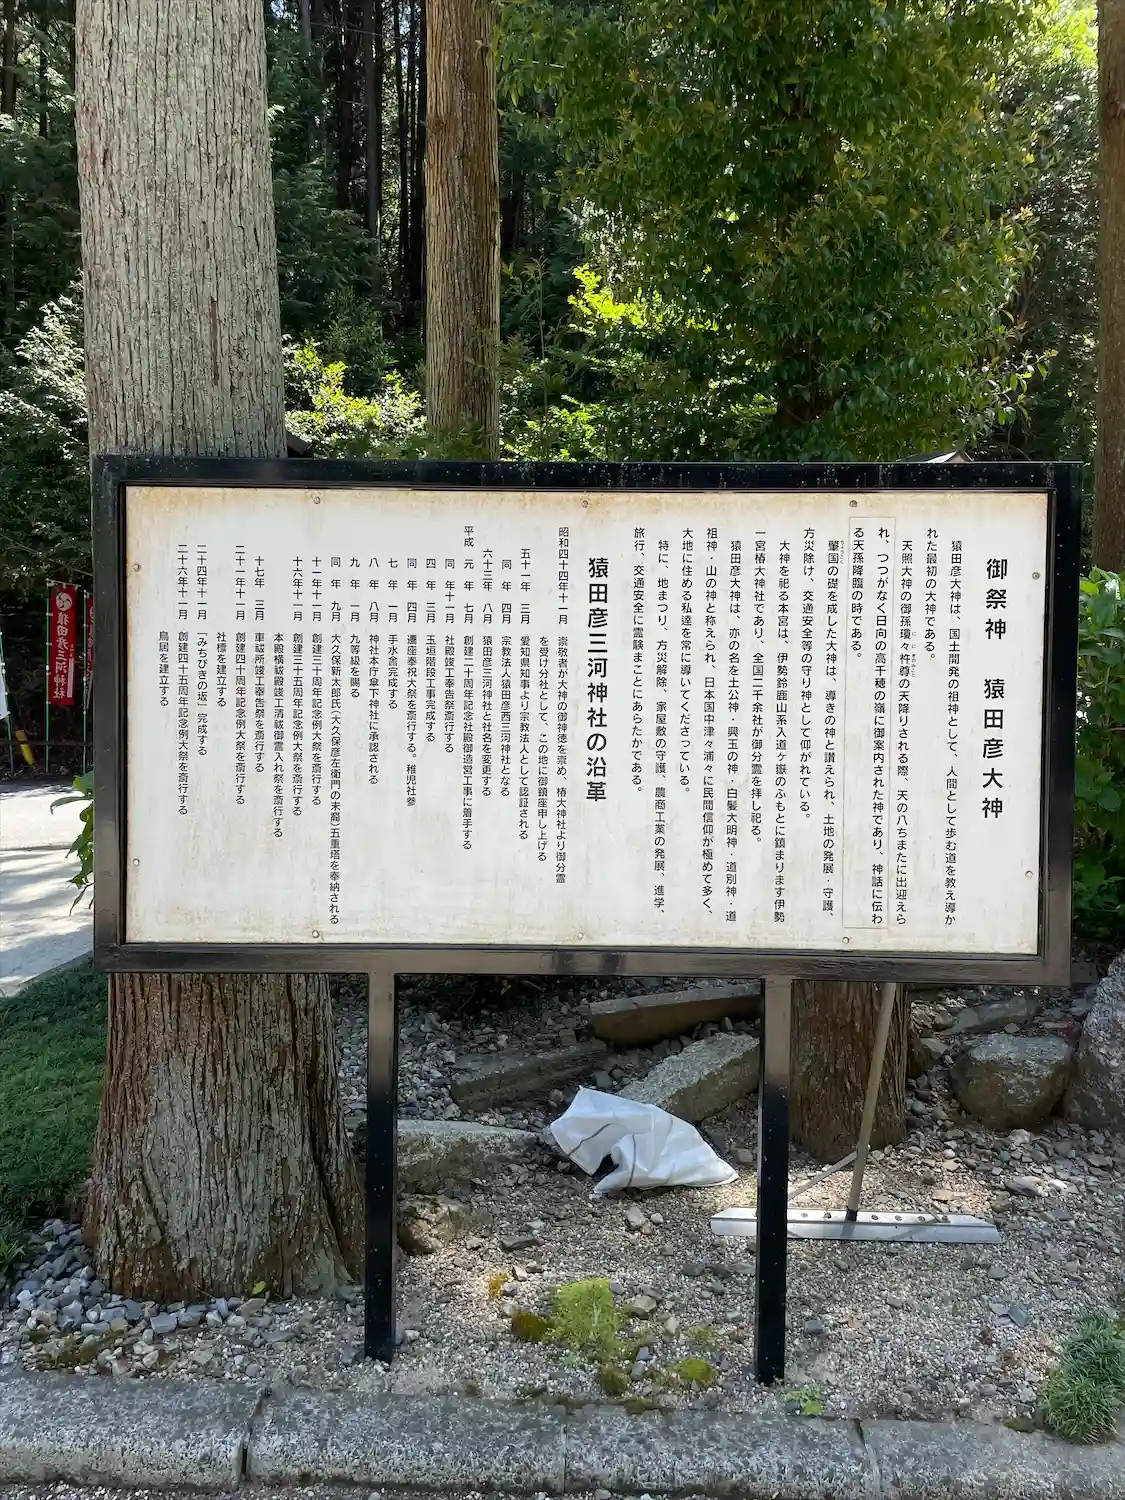 御祭神　猿田彦大神
猿田彦大神は、国土開発の祖神として、人間として歩む道を教え導か
れた最初の大神である。
天照大神の御孫瓊々杵尊の天降りされる際、天の八ちまたに出迎えら
れ、つつがなく日向の高千穂の嶺に御案内された神であり、神話に伝わ
る天孫降臨の時である。
肇国の礎を成した大神は、導きの神と讃えられ、土地の発展・守護、
方災除け、交通安全等の守り神として仰がれている。
大神を祀る本宮は、伊勢鈴鹿山系入道ヶ嶽のふもとに鎮まります伊勢
一宮椿大神社であり、全国二千余社が御分霊を拝し祀る。
猿田彦大神は、亦の名を土公神・興玉の神・白髪大明神・道別神・道
祖神・山の神と称えられ、日本国中津々浦々に民間信仰が極めて多く、
大地に住める私達を常に導いてくださっている。
特に、地まつり、方災解除、家屋敷の守護、農商工業の発展、進学、
旅行、交通安全に霊験まことにあらたかである。
猿田彦三河神社の沿革
昭和四十四年十一月　崇敬者が大神の御神徳を崇め、椿大神社より御分霊
を受け分社として、この地に御鎮座申し上げる
五十一年　三月　愛知県知事より宗教法人として認証される
同　年　四月　宗教法人猿田彦西三河神社となる
六十三年　八月　猿田彦三河神社と社名を変更する
平成　元　年　七月　創建二十周年記念社殿御造営工事に着手する
同　年十一月　社殿竣工奉告祭斎行する
四　年　三月　玉垣階段工事完成する
同　年　四月　遷座奉祝大祭を斎行する。稚児社参
七　年　一月　手水舎完成する
八　年　八月　神社本庁傘下神社に承認される
九　年　一月　九等級を賜る
同　年　九月　大久保新太郎氏（大久保彦左衛門の末裔）五重塔を奉納される
十一年十一月　創建三十周年記念例大祭を斎行する
十六年十一月　創建三十五周年記念例大祭を斎行する
本殿横祓殿竣工清祓御霊入れ祭を斎行する
十七年　三月　車祓所竣工奉告祭を斎行する
二十一年十一月　創建四十周年記念例大祭を斎行する
社標を建立する
二十四年十一月　「みちびきの坂」完成する
二十六年十一月　創建四十五周年記念例大祭を斎行する
鳥居を建立する
猿田彦三河神社